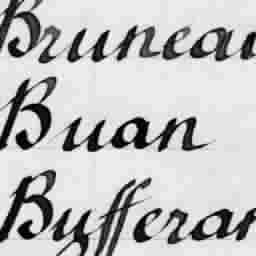 Bruneau
Buan
Bufferan